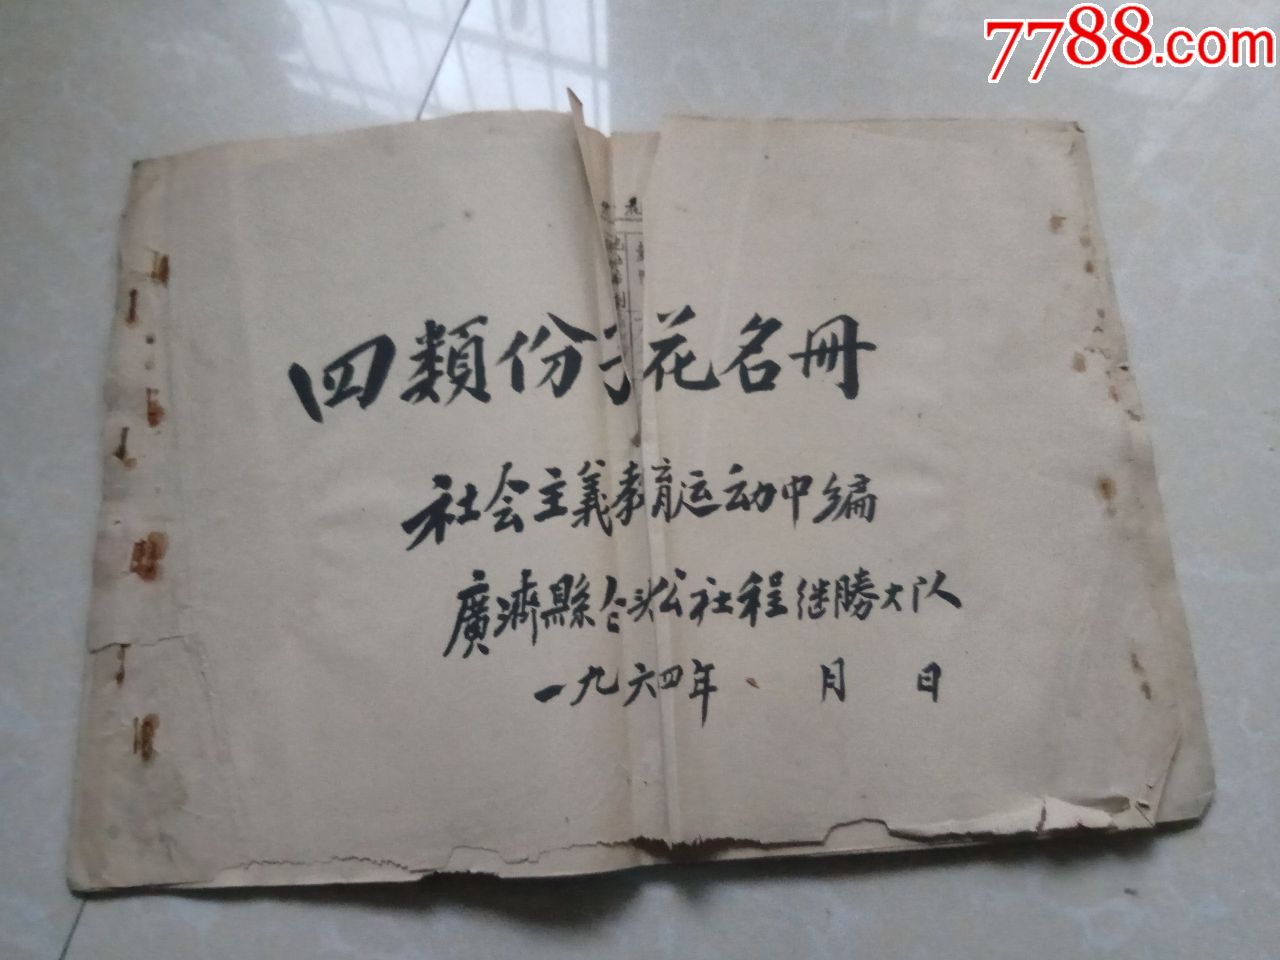 7788.com
四類份子花名冊
社会主義教育运动中編
廣濟縣仑头公社程继勝大队
一九六四年 月 日